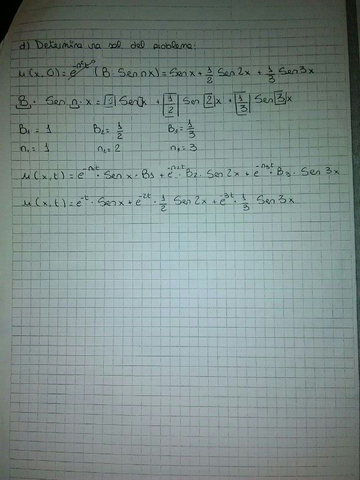 d) Determina una sol del problema:
u(x,0) = e^{-n²t} (B Sen nx) = Sen x + 1/2 Sen 2x + 1/3 Sen 3x
B · Sen n · x = 1 Sen x + 1/2 Sen 2 x + 1/3 Sen 3 x
B₁ = 1 B₂ = 1/2 B₃ = 1/3
n₁ = 1 n₂ = 2 n₃ = 3
u(x,t) = e^{-n₁t} · Sen x · B₁ + e^{-n₂t} · B₂ · Sen 2x + e^{-n₃t} · B₃ · Sen 3x
u(x,t) = e^{-t} · Sen x + e^{-2t} · 1/2 Sen 2x + e^{-3t} · 1/3 Sen 3x